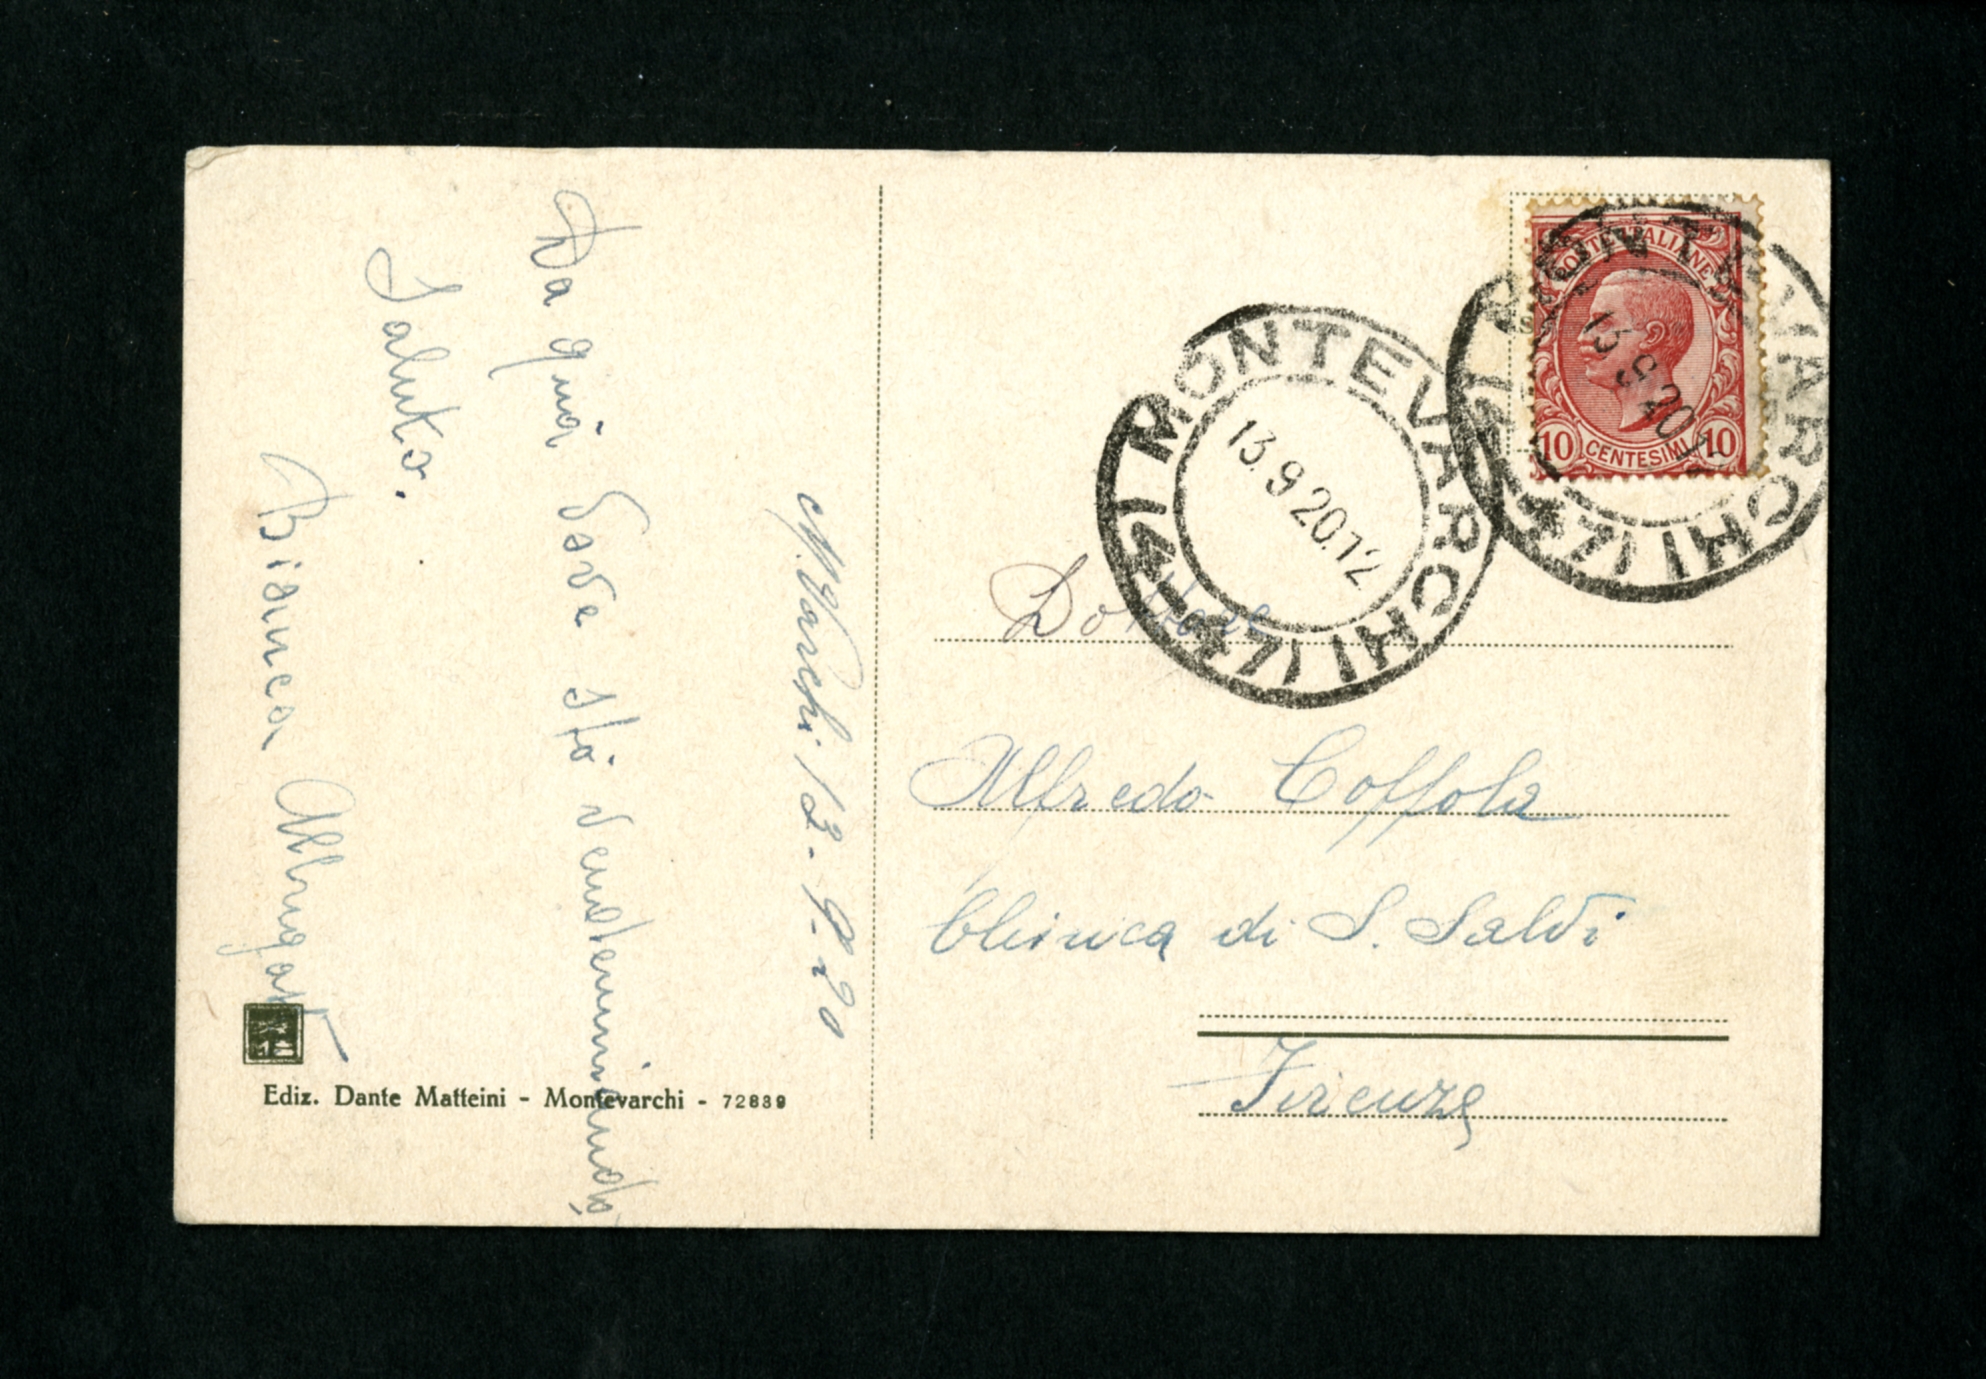 M. Varchi 13-9-20
Da quà dove stò vendemmiando,
Saluto.
Bianca
Ediz. Dante Matteini - Montevarchi - 72839
POSTE ITALIANE
10 CENTESIMI 10
MONTEVARCHI
13.9.20.12
MONTEVARCHI
13.9.20
Dottore
Alfredo Coppola
Clinica di S. Salvi
Firenze